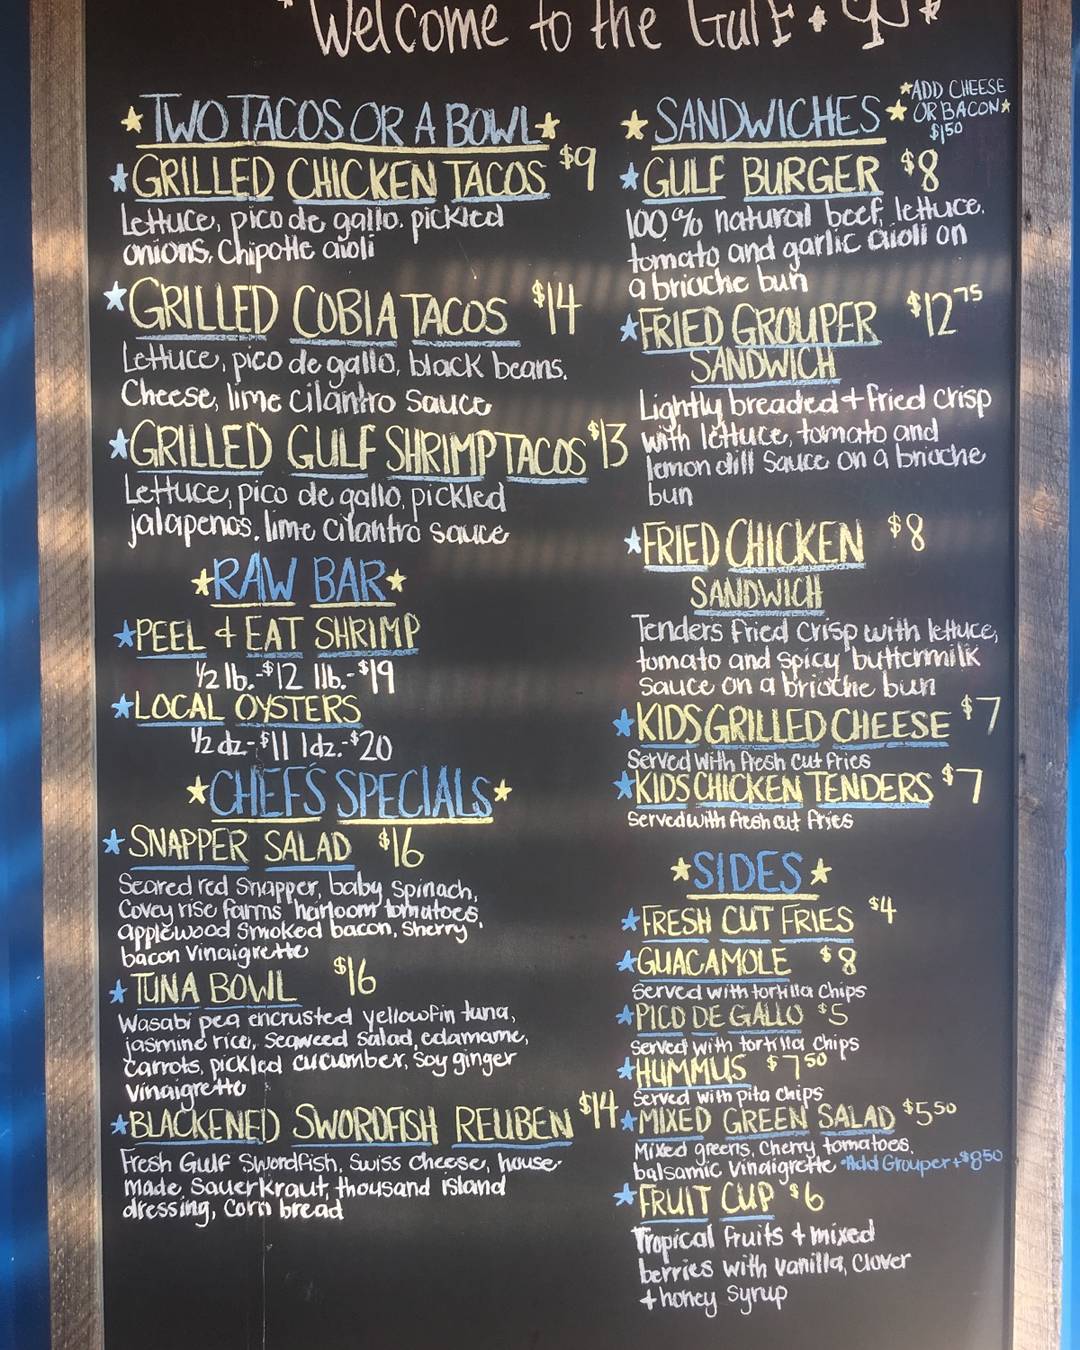 Welcome to the Gulf
TWO TACOS OR A BOWL
GRILLED CHICKEN TACOS $9
Lettuce, pico de gallo, pickled
onions, Chipotle aioli
GRILLED COBIA TACOS $14
Lettuce, pico de gallo, black beans,
Cheese, lime cilantro sauce
GRILLED GULF SHRIMP TACOS $13
Lettuce, pico de gallo, pickled
jalapenos, lime cilantro sauce
RAW BAR
PEEL & EAT SHRIMP
1/2 lb.-$12 1lb.-$19
LOCAL OYSTERS
1/2 dz-$11 1dz.-$20
CHEF'S SPECIALS
SNAPPER SALAD $16
Seared red snapper, baby spinach,
Covey rise farms heirloom tomatoes,
applewood smoked bacon, sherry
bacon vinaigrette
TUNA BOWL $16
Wasabi pea encrusted yellowfin tuna,
jasmine rice, seaweed salad, edamame,
carrots, pickled cucumber, soy ginger
vinaigrette
BLACKENED SWORDFISH REUBEN $14
Fresh Gulf Swordfish, Swiss cheese, house-
made sauerkraut, thousand island
dressing, corn bread
SANDWICHES
ADD CHEESE
OR BACON
$1.50
GULF BURGER $8
100% natural beef, lettuce,
tomato and garlic aioli on
a brioche bun
FRIED GROUPER $12.75
SANDWICH
Lightly breaded + fried crisp
with lettuce, tomato and
lemon dill sauce on a brioche
bun
FRIED CHICKEN $8
SANDWICH
Tenders fried crisp with lettuce,
tomato and spicy buttermilk
sauce on a brioche bun
KIDS GRILLED CHEESE $7
Served with fresh cut fries
KIDS CHICKEN TENDERS $7
Served with fresh cut fries
SIDES
FRESH CUT FRIES $4
GUACAMOLE $8
Served with tortilla chips
PICO DE GALLO $5
Served with tortilla chips
HUMMUS $7.50
Served with pita chips
MIXED GREEN SALAD $5.50
Mixed greens, Cherry tomatoes,
balsamic vinaigrette *Add Grouper +$8.50
FRUIT CUP $6
Tropical fruits & mixed
berries with vanilla, clover
+ honey syrup